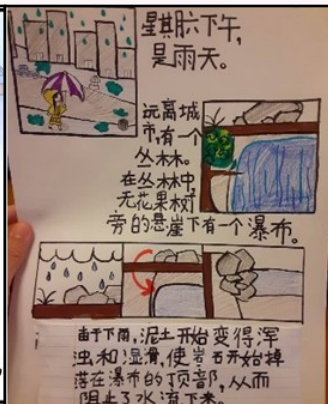 星期六下午,
是雨天。
远离城
市,有一个
丛林。
在丛林中,
无花果树
旁的悬崖下有一个瀑布。
由于下雨,泥土开始变得浑
浊和湿滑,使岩石开始掉
落在瀑布的顶部,从而
阻止了水流下来。